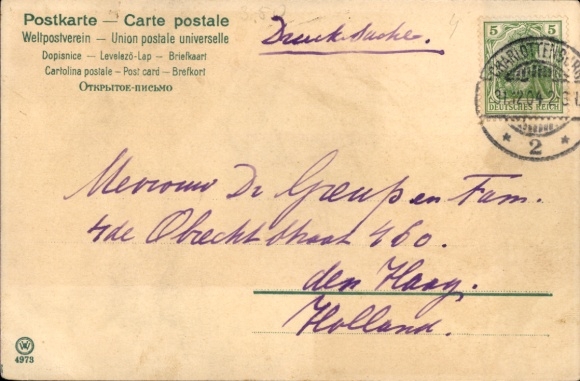 Postkarte — Carte postale
Weltpostverein — Union postale universelle
Dopisnice — Levelező-Lap — Briefkaart
Cartolina postale - Post card - Brefkort
Открытое-письмо
Drucksache.
5 5
CHARLOTTENBURG
31.12.04.
DEUTSCHES REICH
* 2 *
Mevrouw Dr Greup en Fam.
4de Obrechtstraat 460.
den Haag.
Holland.
4973